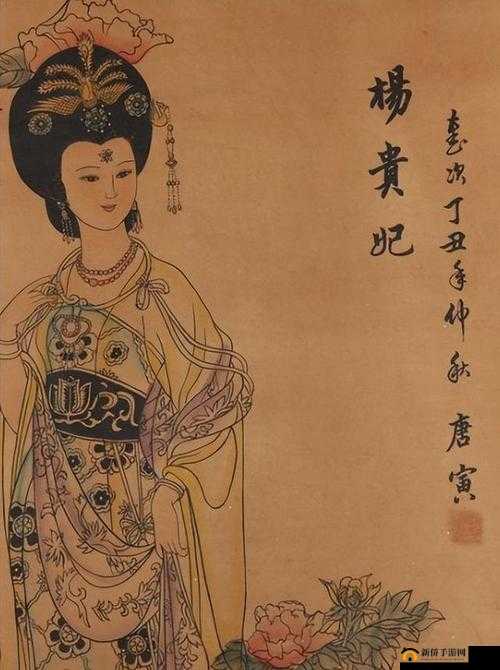 楊貴妃
歲次丁丑年仲秋 唐寅
新侨手游网